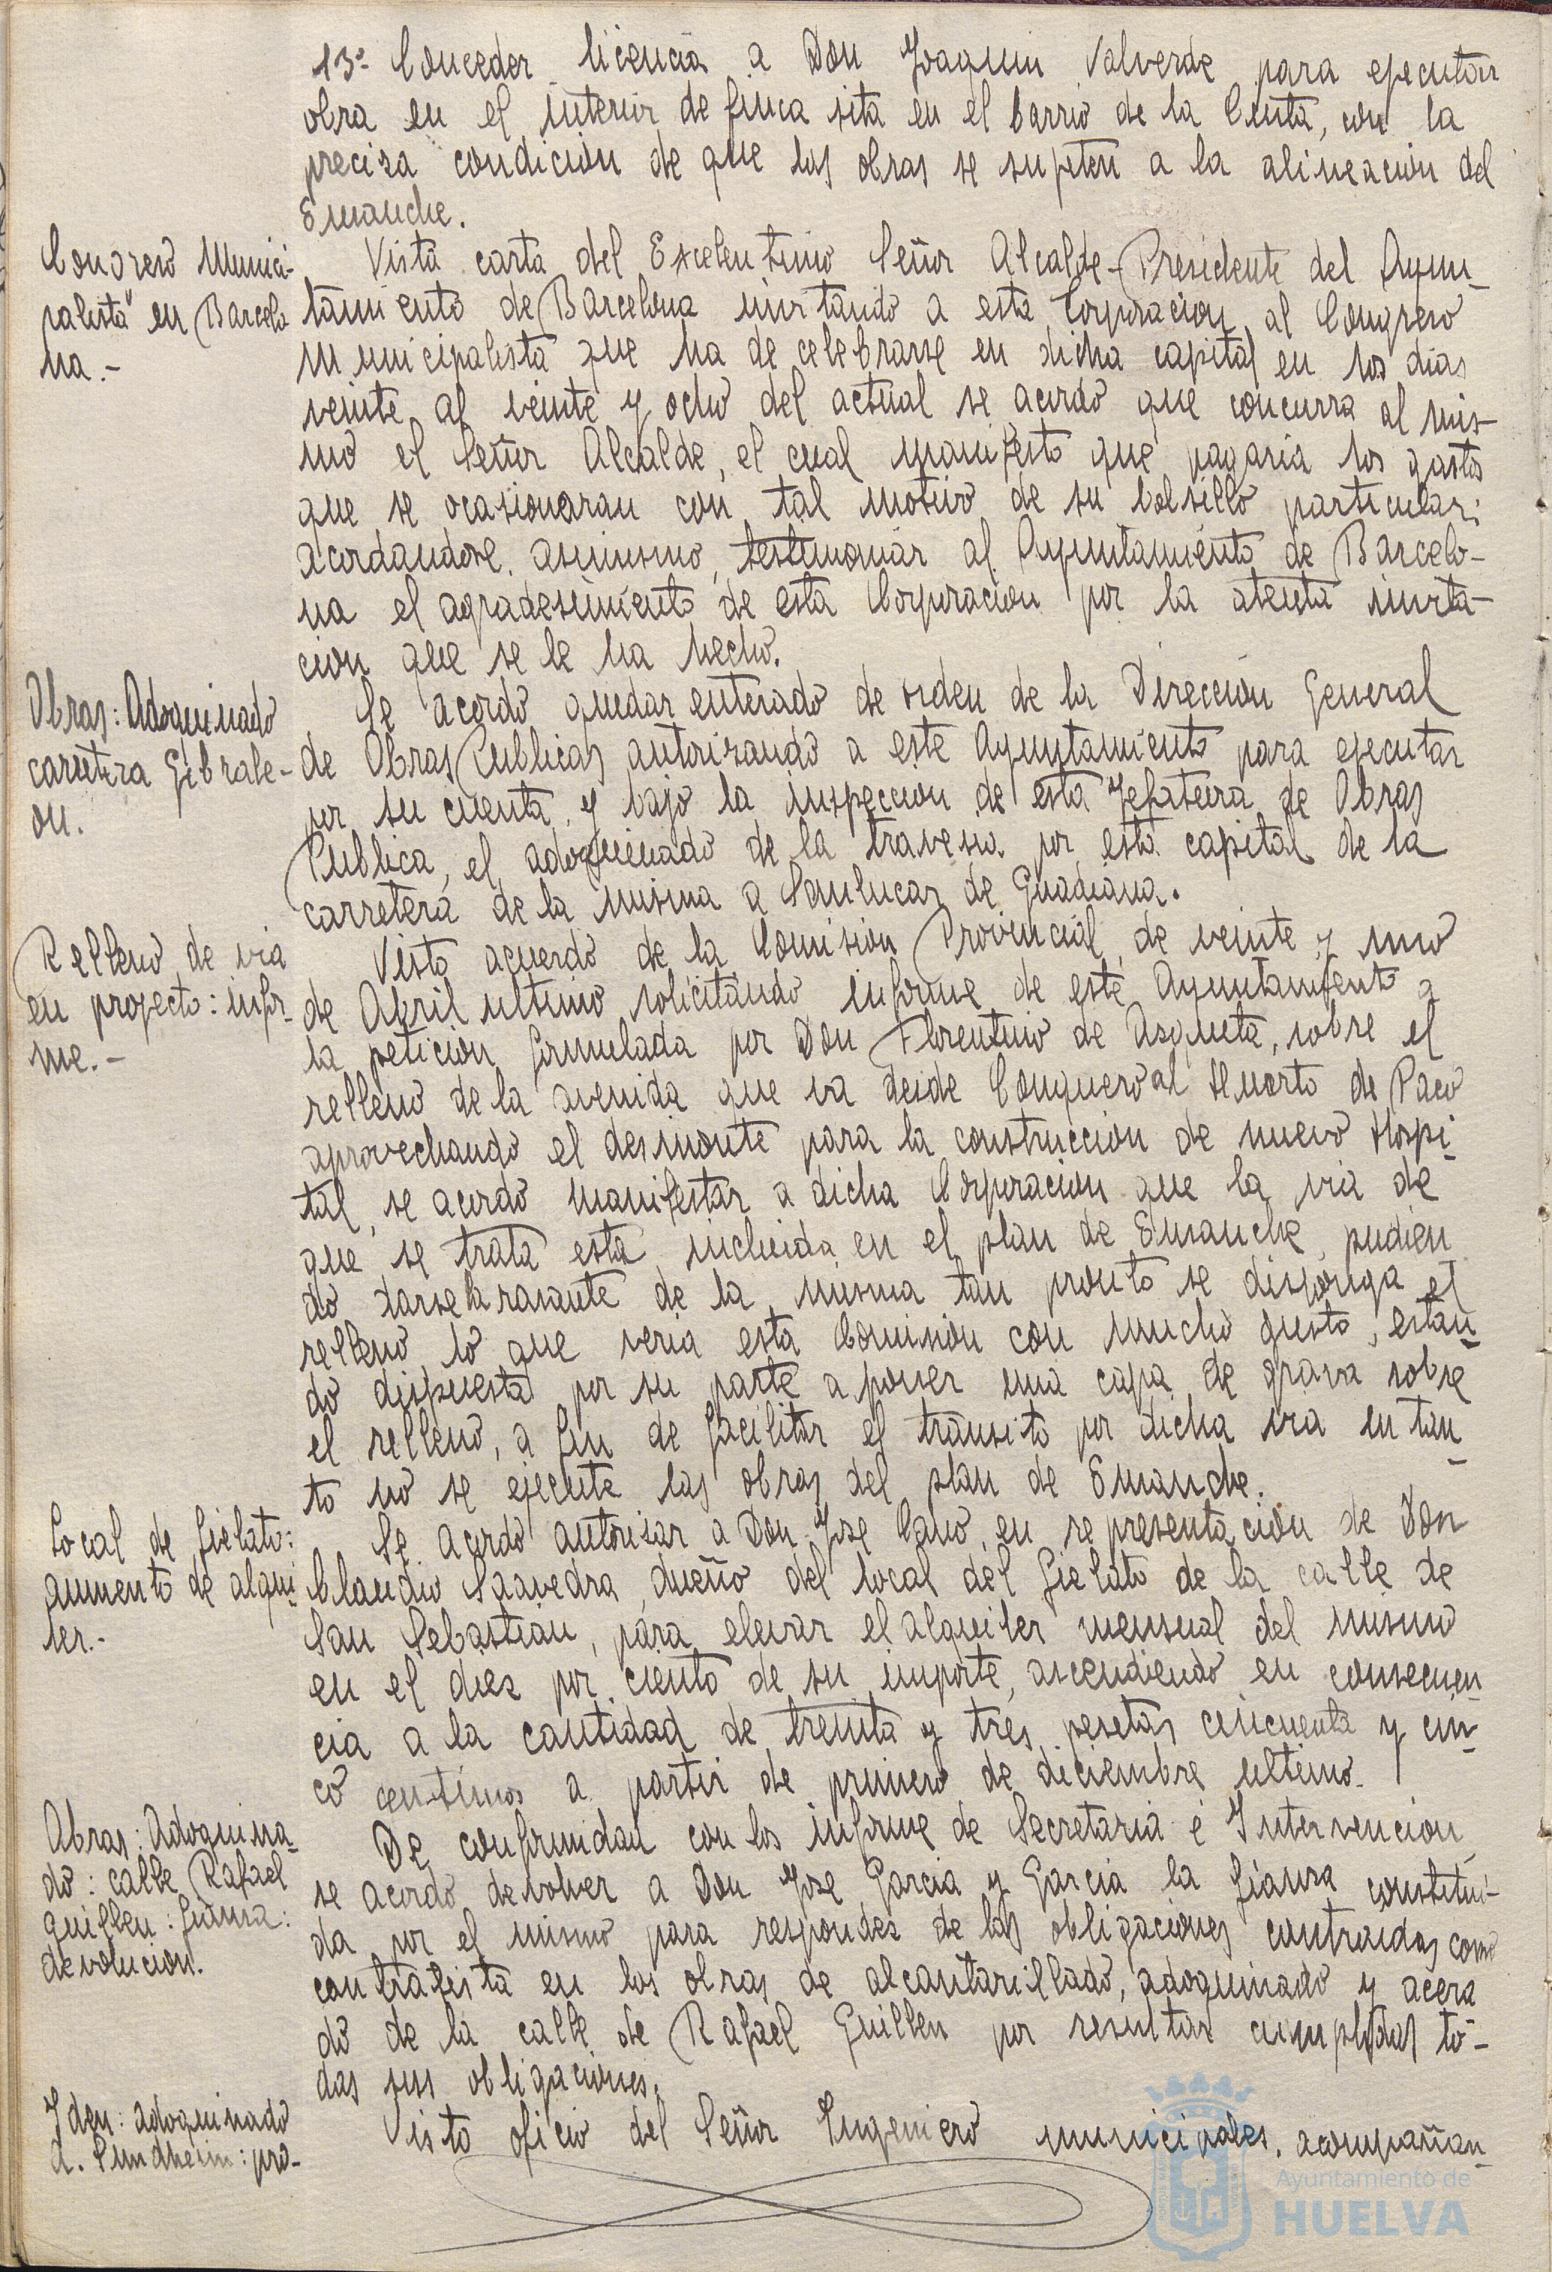 13º Conceder licencia a Don Joaquin Valverde para ejecutar
obra en el interior de finca sita en el barrio de la Cinta, con la
precisa condicion de que las obras se sujeten a la alineacion del
Ensanche.
Congreso Munici-
palista" en Barcelo
na.-
Vista carta del Excelentisimo Señor Alcalde-Presidente del Ayun-
tamiento de Barcelona invitando a esta Corporacion al Congreso
Municipalista que ha de celebrarse en dicha capital en los dias
veinte al veinte y ocho del actual se acordó que concurra al mis-
mo el Señor Alcalde, el cual manifesto que pagaria los gastos
que se ocasionaran con tal motivo de su bolsillo particular;
acordandose, asimismo, testimoniar al Ayuntamiento de Barcelo-
na el agradesimiento de esta Corporacion por la atenta invita-
cion que se le ha hecho.
Obras: Adoquinado
carretera Gibrale-
on.
Se acordó quedar enterado de orden de la Dirección General
de Obras Publicas autorizando a este Ayuntamiento para ejecutar
por su cuenta, y bajo la inspeccion de esta Jefatura de Obras
Publica, el adoquinado de la travesia por esta capital de la
carretera de la misma a Sanlucar de Guadiana.
Relleno de via
en proyecto: infor-
me.-
Visto acuerdo de la Comision Provincial de veinte y uno
de Abril ultimo solicitando informe de este Ayuntamiento a
la peticion formulada por Don Florentino de Asqueta, sobre el
relleno de la avenida que va desde Conquero al Huerto de Paco
aprovechando el desmonte para la construccion de nuevo Hospi-
tal, se acordó manifestar a dicha Corporacion que la via de
que se trata esta incluida en el plan de Ensanche, pudien
do darse la rasante de la misma tan pronto se disponga el
relleno, lo que veria esta Comision con mucho gusto, estan-
do dispuesta por su parte a poner una capa de grava sobre
el relleno, a fin de facilitar el transito por dicha via en tan-
to no se ejecute las obras del plan de Ensanche.
Local de fielato:
aumento de alqui
ler.-
Se acordó autorizar a Don Jose Cano, en representacion de Don
Claudio Saavedra, dueño del local del Fielato de la calle de
San Sebastian, para elevar el alquiler mensual del mismo
en el diez por ciento de su importe, ascendiendo en consecuen-
cia a la cantidad de treinta y tres pesetas cincuenta y cin-
co centimos a partir de primero de diciembre ultimo.
Obras: Adoquina-
do: calle Rafael
Guillen: fianza:
devolucion.
De conformidan con los informe de Secretaria é Intervencion
se acordó devolver a Don Jose Garcia y Garcia la fianza constitui-
da por el mismo para responder de las obligaciones contraidas como
contratista en las obras de alcantarillado, adoquinado y acera
do de la calle de Rafael Guillen por resultar cumplidas to-
das sus obligaciones.
Iden: adoquinado
A. Sundheim: pro-
Visto oficio del Señor Ingeniero municipales, acompañan-
Ayuntamiento de
HUELVA